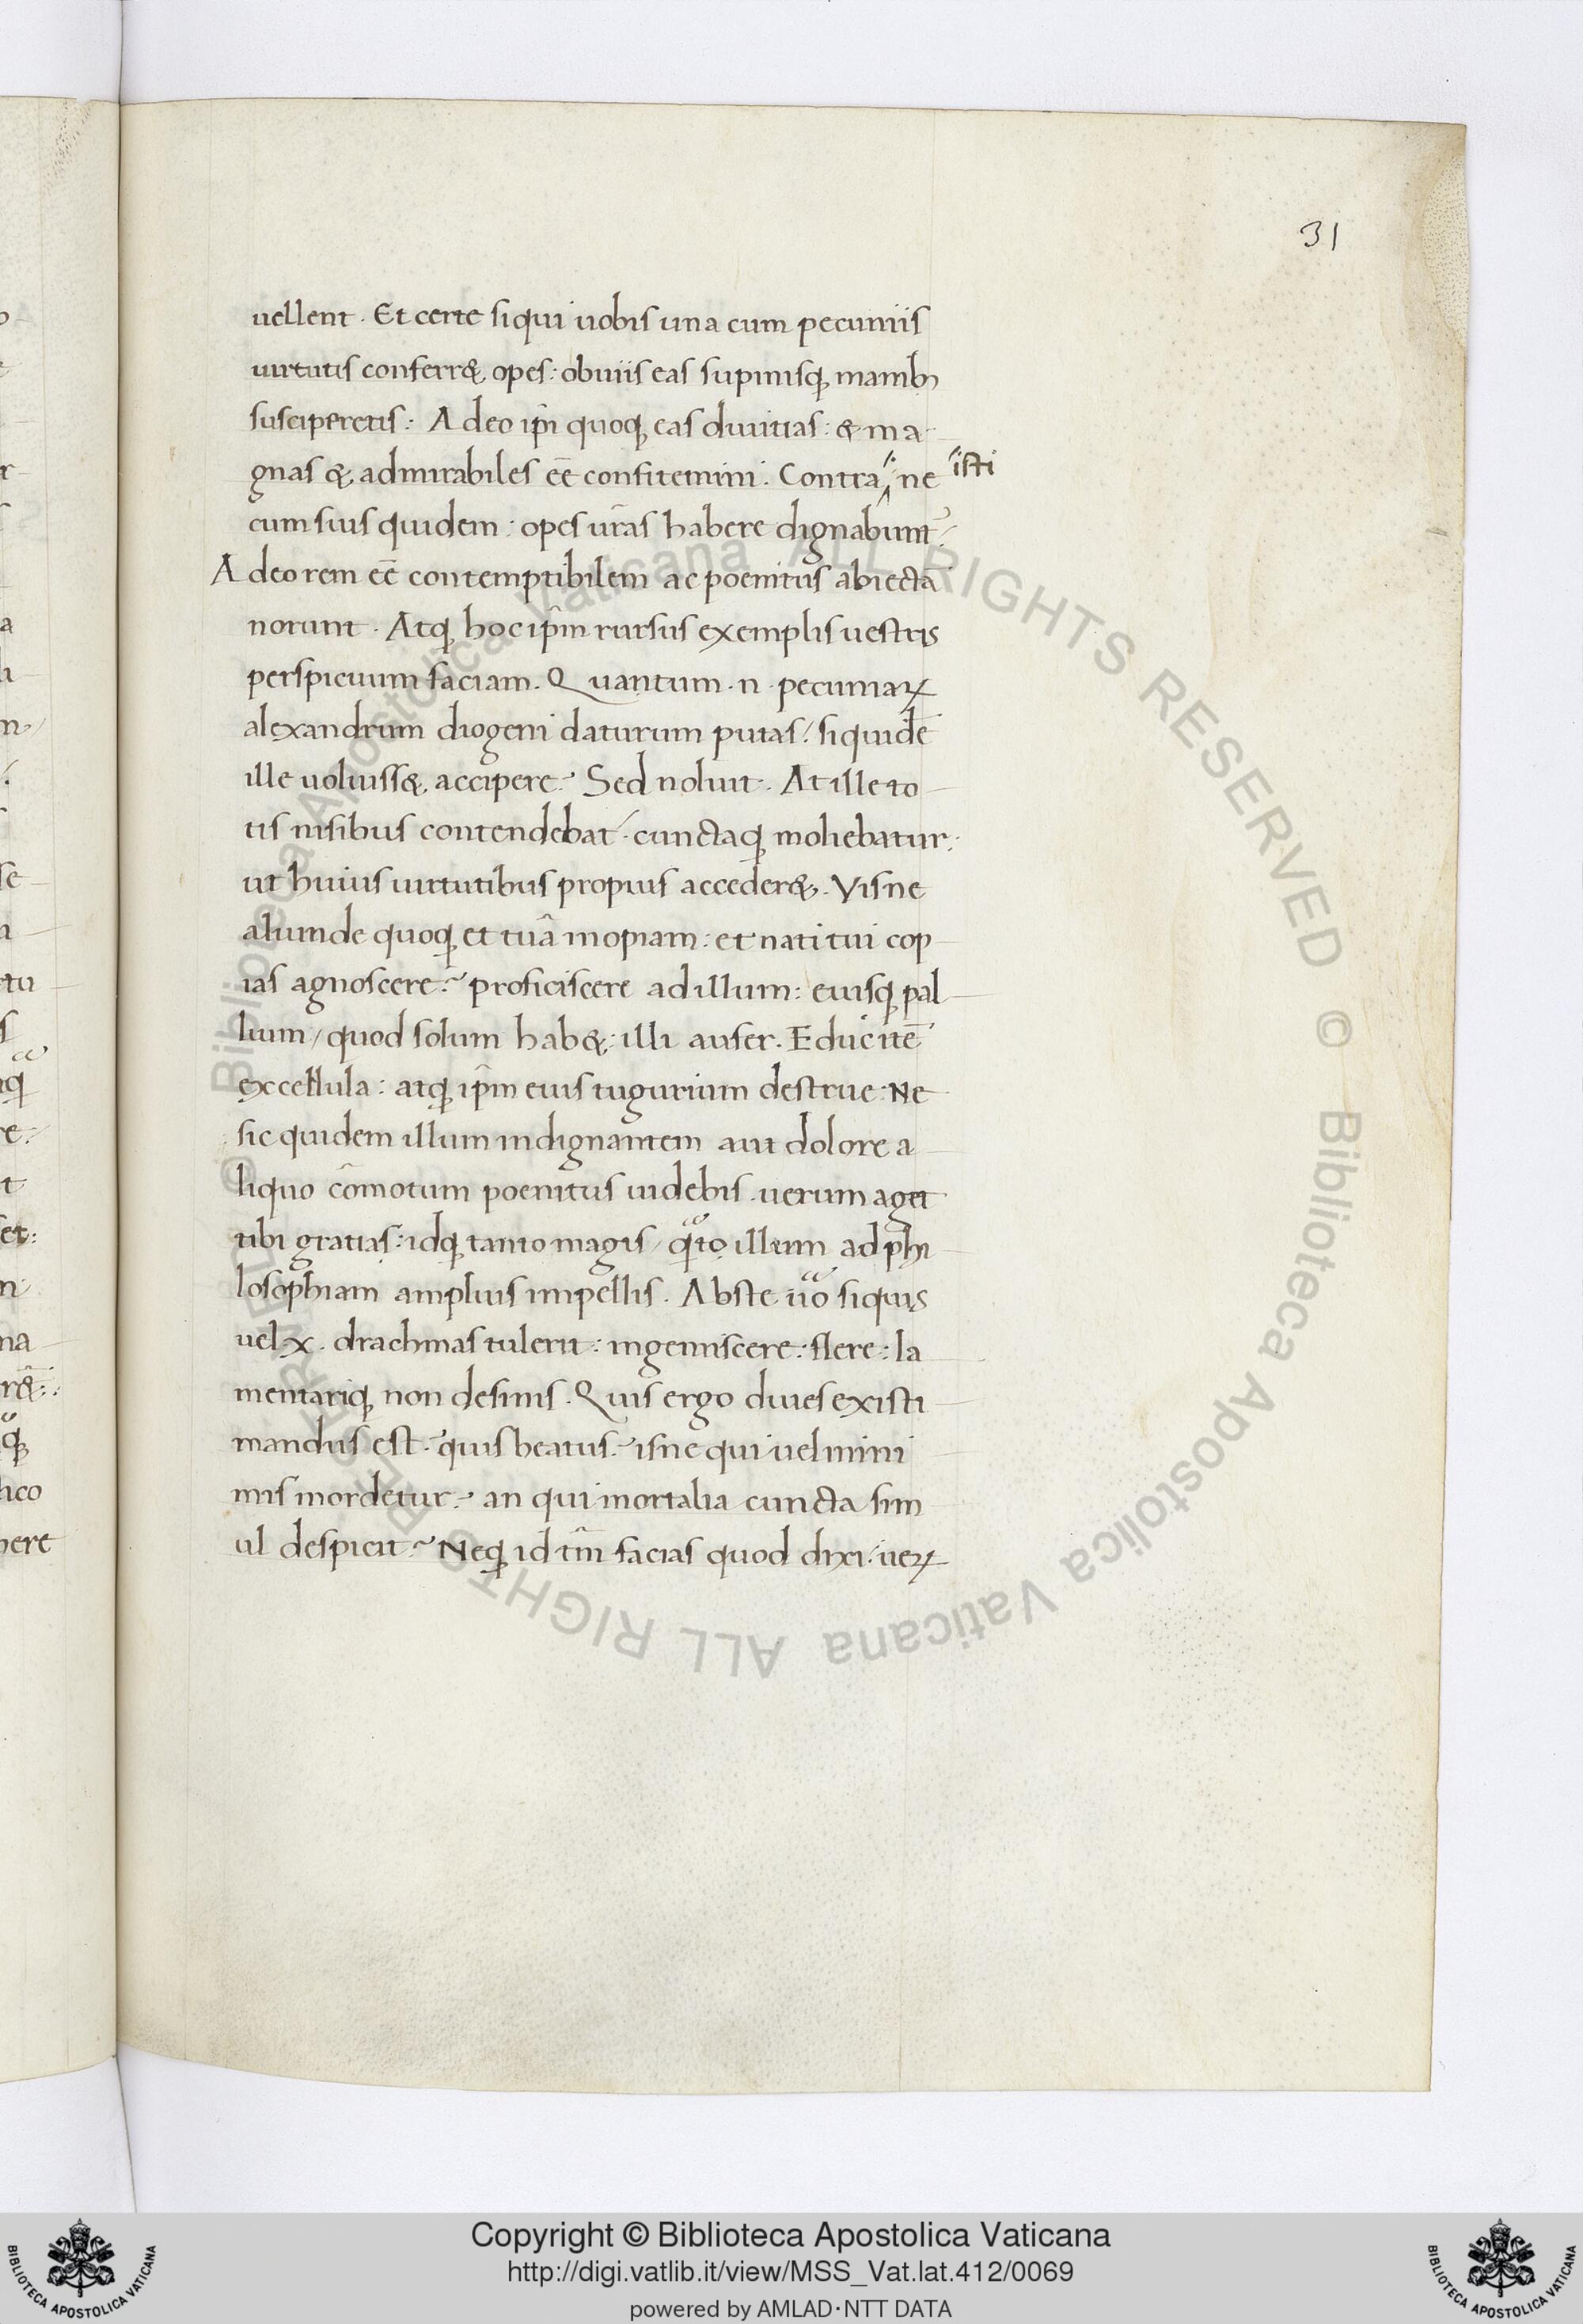 31
uellent. Et certe siqui uobis una cum pecuniis
uirtutis conferr&, opes: obuiis eas supinisq; manib;
susciperetis: Adeo ip̄i quoq; eas diuitias: & ma
gnas & admirabiles eē confitemini. Contra ne
isti
cum suis quidem: opes ur̄as habere dignabunt᷒:
Adeo rem eē contemptibilem ac poenitus abiectā
norunt. Atq; hoc ip̄m rursus exemplis uestris
perspicuum faciam. Quantum .n. pecuniaꝝ
alexandrum diogeni daturum putas/ siquidē
ille uoluiss&, accipere? Sed noluit. At ille to
tis nisibus contendebat: cunctaq; moliebatur:
ut huius uirtutibus propius acceder&. Visne
aliunde quoq; et tuā inopiam: et nati tui cop
ias agnoscere? proficiscere ad illum: eiusq; pal
lium/ quod solum hab&: illi aufer. Educ itē
excellula: atq; ip̄m eius tugurium destrue: Ne
sic quidem illum indignantem aut dolore a
liquo cōmotum poenitus uidebis. uerum aget
tibi gratias: idq; tanto magis/ qͣto illum ad phi
losophiam amplius impellis. Abste ūo siquis
uel .x. drachmas tulerit: ingemiscere: flere: la
mentariq; non desinis. Quis ergo diues existi
mandus est? quis beatus? isne qui uel mini
mis mordetur? an qui mortalia cuncta sim
ul despicit? Neq; id tm̄ facias quod dixi: ueꝝ
Copyright © Biblioteca Apostolica Vaticana
http://digi.vatlib.it/view/MSS_Vat.lat.412/0069
powered by AMLAD·NTT DATA